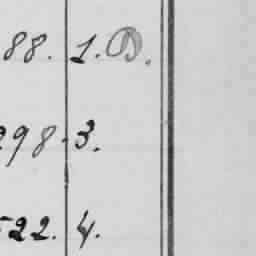 88. 1. D.
298. 3.
522. 4.